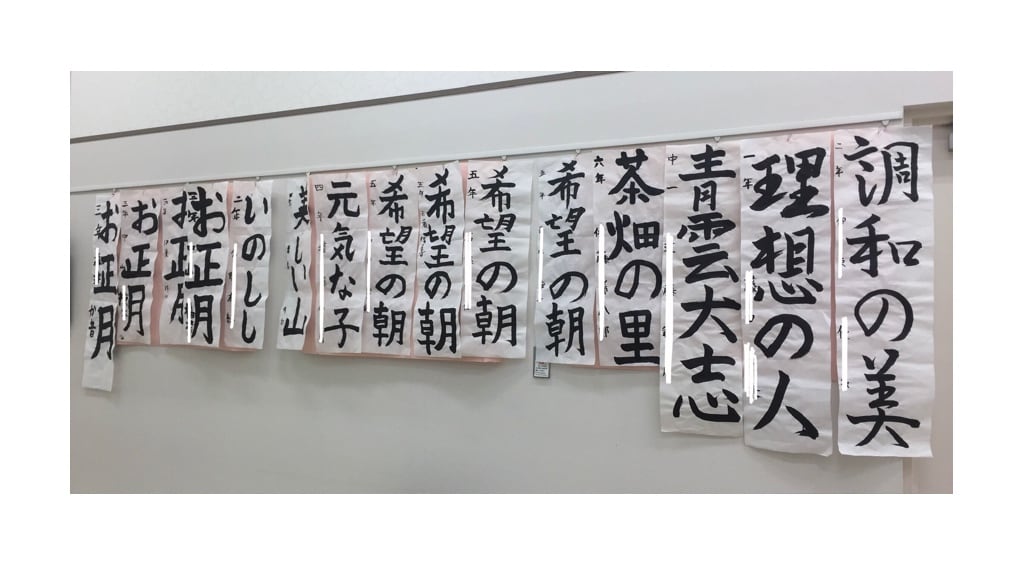 調和の美
二年
理想の人
一年
青雲大志
中一
茶畑の里
六年
希望の朝
五年
希望の朝
五年
希望の朝
希望の朝
五年
元気な子
四年
美しい山
いのしし
二年
お正月
お正月
お正月
三年
お正月
三年